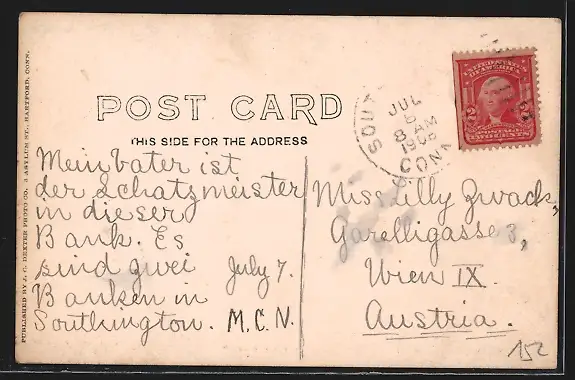 POST CARD
THIS SIDE FOR THE ADDRESS
PUBLISHED BY J. C. DEXTER PHOTO CO. ASYLUM ST., HARTFORD, CONN.
Mein Vater ist
der Schatzmeister
in dieser
Bank. Es
sind zwei
Banken in
Southington.
July 7.
M.C.N.
JUL
8 AM
CONN
UNITED STATES
OF AMERICA
POSTAGE
2
Miss Lilly Zwack,
Garelligasse 3,
Wien IX.
Austria.
152